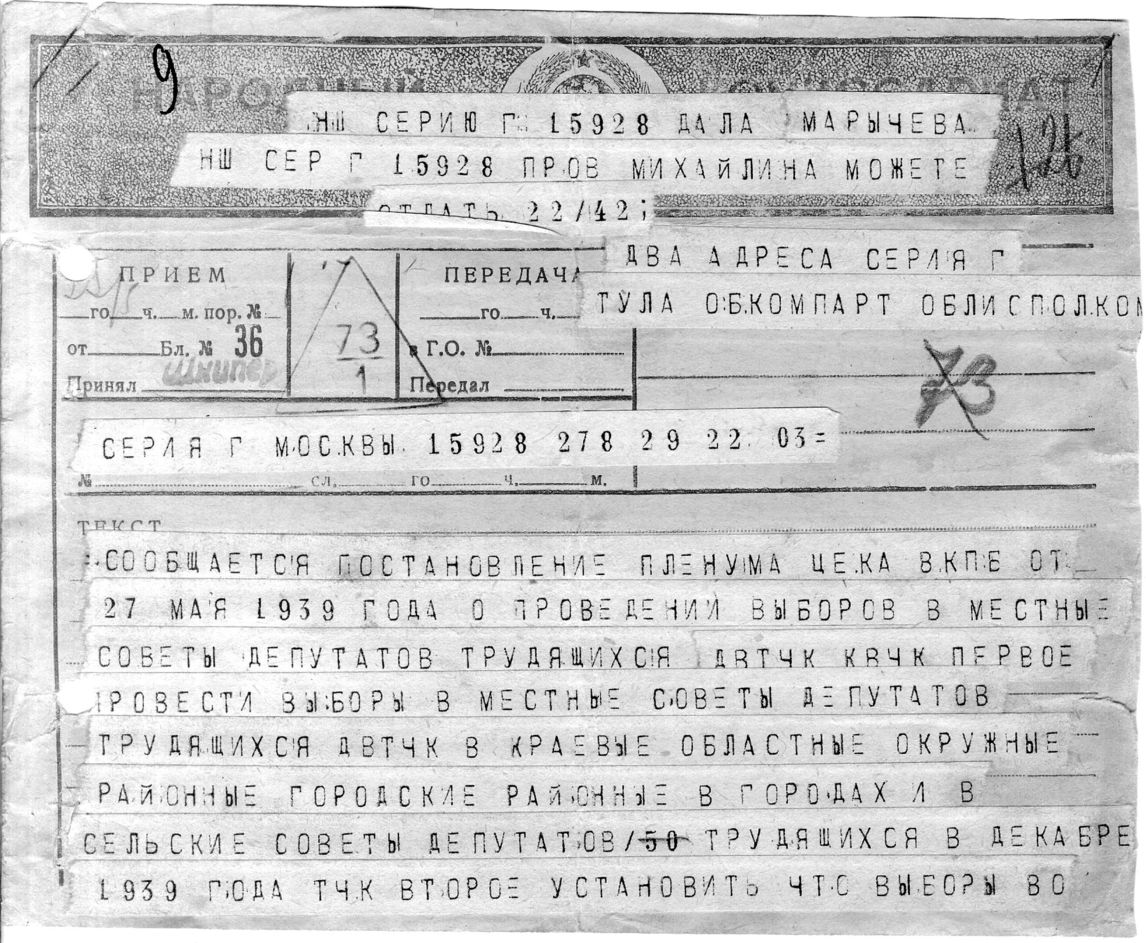 9
НАРОДНЫЙ КОМИССАРИАТ
НШ СЕРИЮ Г 15928 ДАЛА МАРЫЧЕВА
НШ СЕР Г 15928 ПРОВ МИХАЙЛИНА МОЖЕТЕ
ОТДАТЬ 22/42;
ДВА АДРЕСА СЕРИЯ Г
ТУЛА ОБКОМПАРТ ОБЛИСПОЛКОМ
ПРИЕМ
го ч. м. пор. №
от Бл. № 36
Принял Шкипер
73
1
ПЕРЕДАЧА
го ч.
в Г.О. №
Передал
73
СЕРИЯ Г МОСКВЫ 15928 278 29 22 03=
№ сл. го ч. м.
ТЕКСТ
:СООБЩАЕТСЯ ПОСТАНОВЛЕНИЕ ПЛЕНУМА ЦЕКА ВКПБ ОТ
27 МАЯ 1939 ГОДА О ПРОВЕДЕНИИ ВЫБОРОВ В МЕСТНЫЕ
СОВЕТЫ ДЕПУТАТОВ ТРУДЯЩИХСЯ ДВТЧК КВЧК ПЕРВОЕ
ПРОВЕСТИ ВЫБОРЫ В МЕСТНЫЕ СОВЕТЫ ДЕПУТАТОВ
ТРУДЯЩИХСЯ ДВТЧК В КРАЕВЫЕ ОБЛАСТНЫЕ ОКРУЖНЫЕ
РАЙОННЫЕ ГОРОДСКИЕ РАЙОННЫЕ В ГОРОДАХ И В
СЕЛЬСКИЕ СОВЕТЫ ДЕПУТАТОВ/50 ТРУДЯЩИХСЯ В ДЕКАБРЕ
1939 ГОДА ТЧК ВТОРОЕ УСТАНОВИТЬ ЧТО ВЫБОРЫ ВО